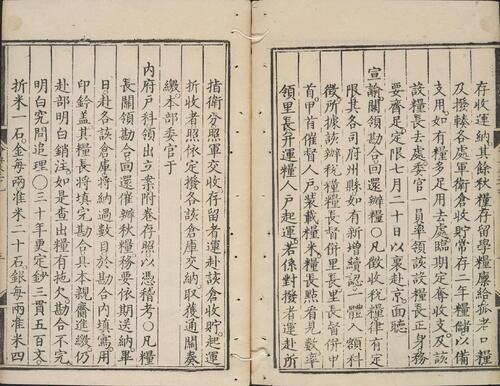 存收運納其餘秋糧存留學糧廩給孤老口糧
及撥轃各處軍衛倉收貯常存二年糧儲以備
支用如有糧多足用去處臨期定奪收支及該
設糧長去處委官一員率領該設糧長正身務
要齊足定限七月二十日以裏赴京面聽
宣諭關領勘合回還辦糧○凡徵收稅糧律有定
限其各司府州縣如有新增續認一體入額科
徵所據該辦稅糧糧長督併里長里長督併甲
首甲首催督人戶裝載糧米糧長點看見數率
領里長并運糧人戶起運若係對撥者運赴所
指衛分照軍交收存留者運赴該倉收貯起運
折收者照依定撥各該倉庫交納取獲通關奏
繳本部委官于
內府戶科領出立案附卷存照以憑稽考○凡糧
長關領勘合回還催辦秋糧務要依期送納畢
日赴各該倉庫將納過數目於勘合內填寫用
印鈐蓋其糧長將填完勘合具本親齎進繳仍
赴部明白銷注如是查出糧有拖欠勘合不完
明白究問追理○三十年更定鈔三貫五百文
折米一石金每兩准米二十石銀每兩准米四